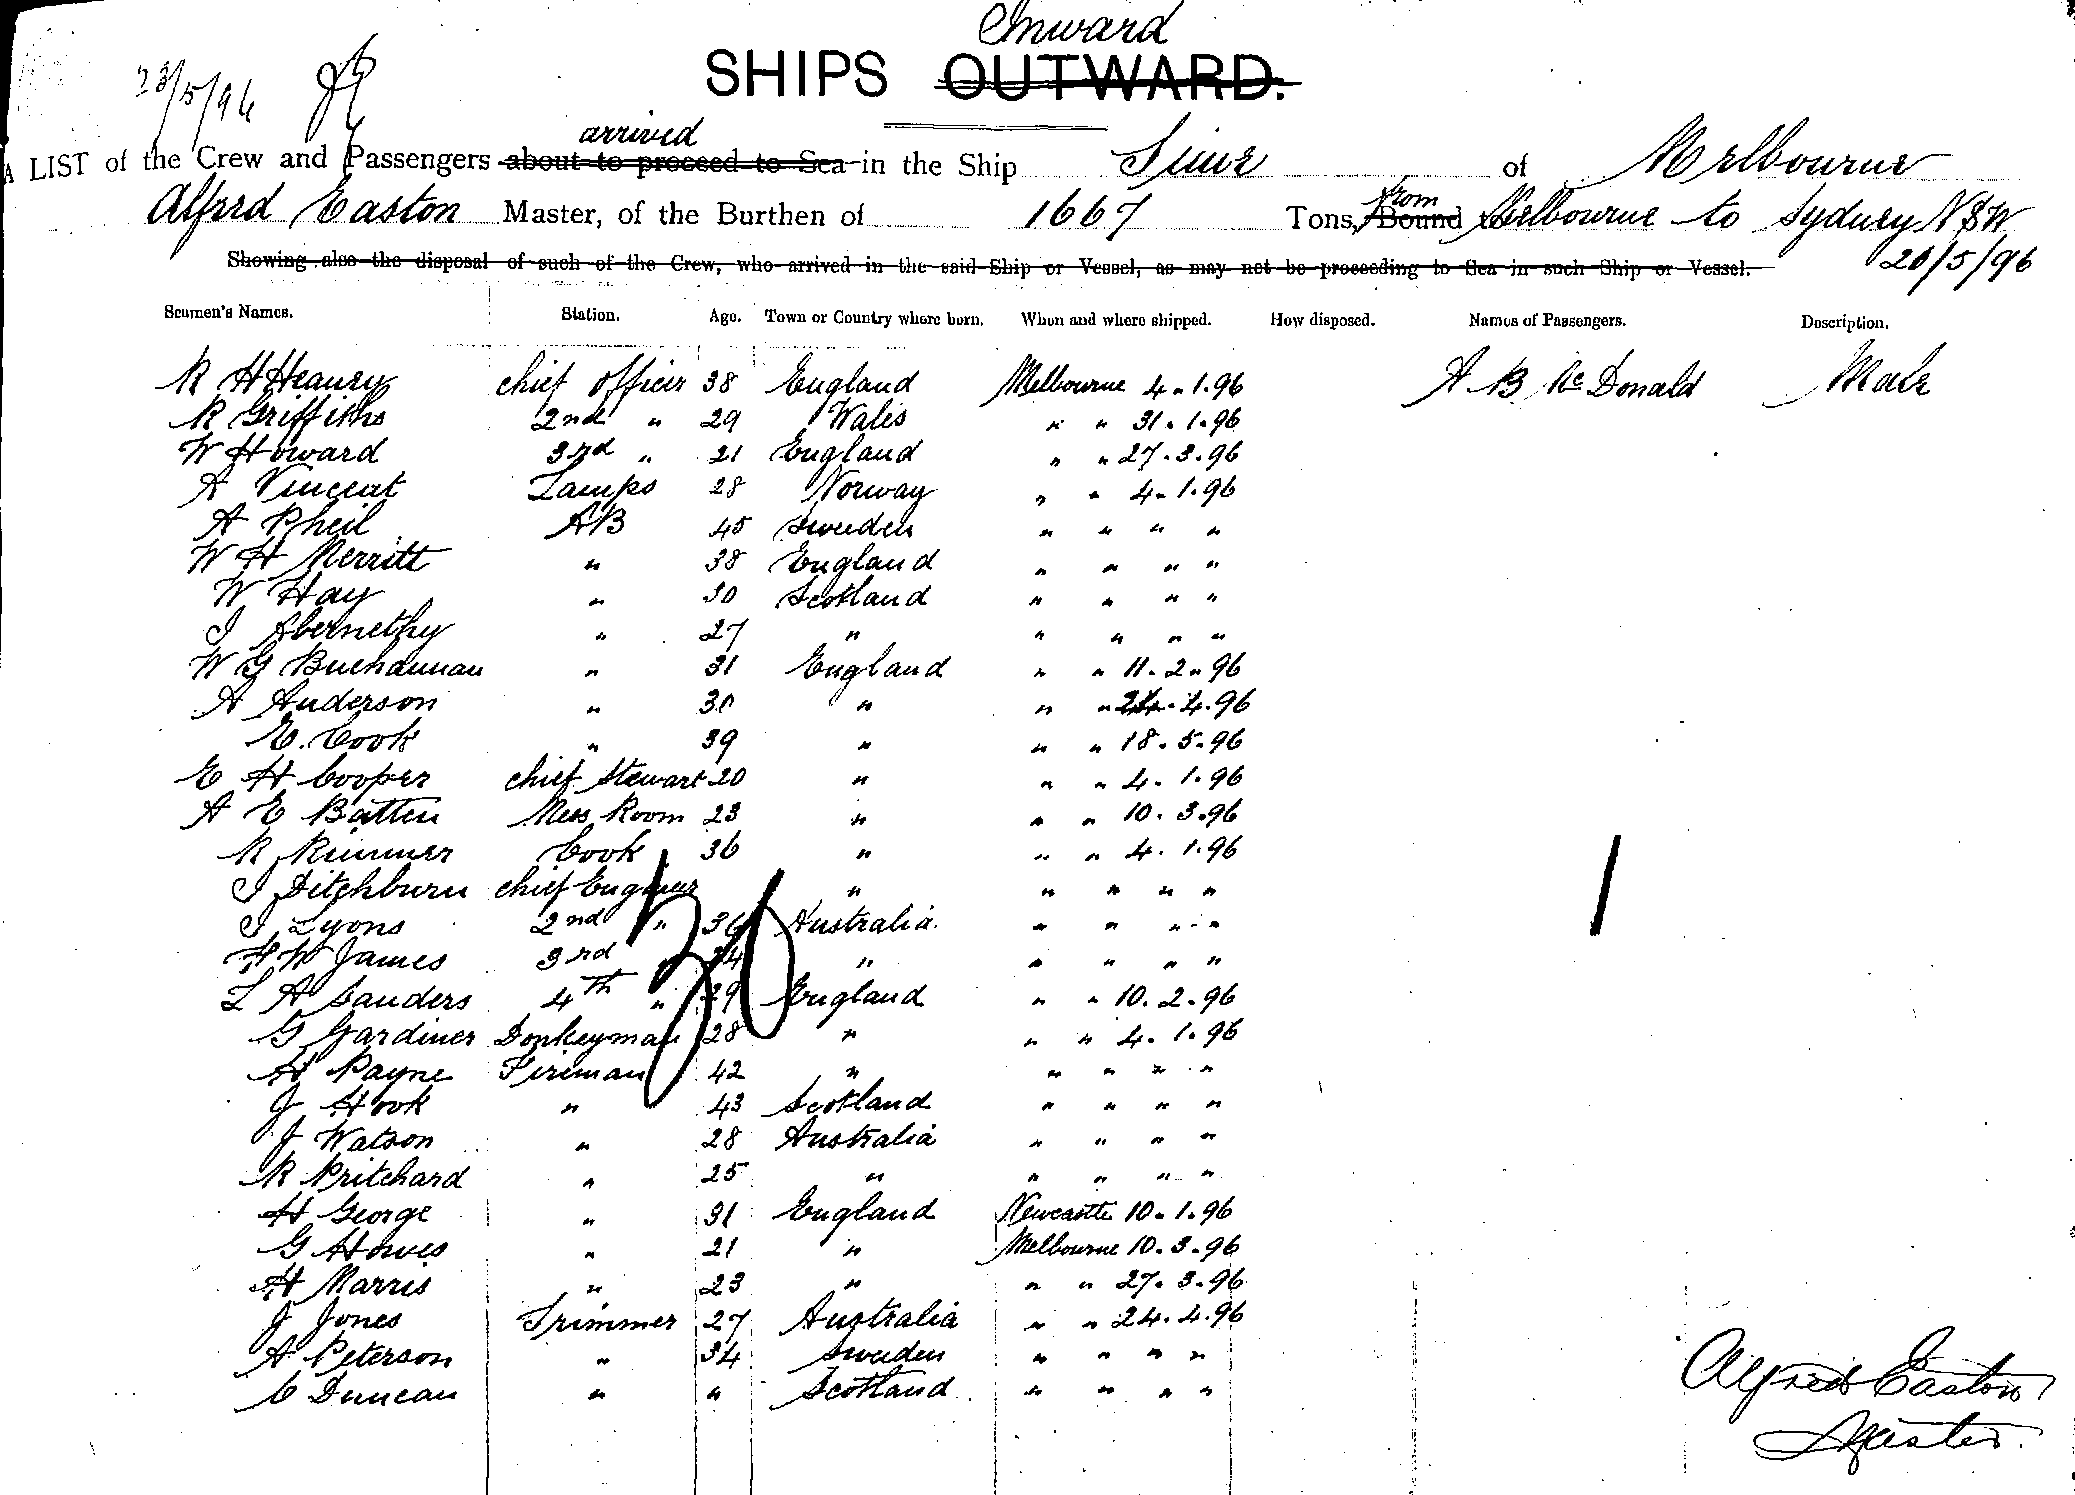 Inward
SHIPS OUTWARD.
23/5/96
arrived
A LIST of the Crew and Passengers about to proceed to Sea in the Ship Time of Melbourne
from
Alfred Easton Master, of the Burthen of 1667 Tons, Bound to Melbourne to Sydney NSW
Showing also the disposal of such of the Crew, who arrived in the said Ship or Vessel, as may not be proceeding to Sea in such Ship or Vessel.
20/5/96
Seumen's Names. Station. Age. Town or Country where born. When and where shipped. How disposed. Names of Passengers. Description.
R H Heaney chief officer 38 England Melbourne 4.1.96 A B McDonald Male
R Griffiths 2nd " 29 Wales " " 31.1.96
W Howard 3rd " 21 England " " 27.3.96
A Vincent Lamps 28 Norway " " 4.1.96
A Pheil AB 45 Sweden " " " "
W H Merritt " 38 England " " " "
W Hay " 30 Scotland " " " "
J Abernethy " 27 " " " " "
W G Buchannan " 31 England " " 11.2.96
A Anderson " 30 " " " 24.4.96
E. Cook " 39 " " " 18.5.96
E H Cooper chief Stewart 20 " " " 4.1.96
A E Batten Mess Room 23 " " " 10.3.96
R Rimmer Cook 36 " " " 4.1.96
J Ditchburn chief Engineer " " " " "
J Lyons 2nd " 36 Australia " " " "
H W James 3rd " 24 " " " " "
L A Sanders 4th " 29 England " " 10.2.96
G Gardiner Donkeyman 28 " " " 4.1.96
H Payne Fireman 42 " " " " "
J Hook " 43 Scotland " " " "
J Watson " 28 Australia " " " "
R Pritchard " 25 " " " " "
H George " 31 England Newcastle 10.1.96
G Howes " 21 " Melbourne 10.3.96
H Marris " 23 " " " 27.3.96
J Jones Trimmer 27 Australia " " 24.4.96
A Peterson " 34 Sweden " " " "
C Duncan " " Scotland " " " "
30
1
Alfred Easton
Master.